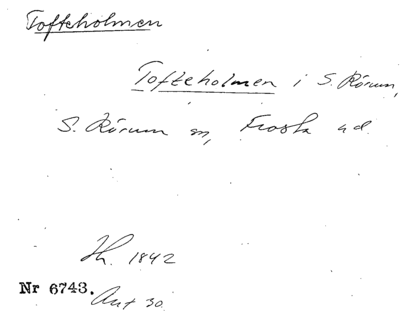 Tofteholmen
Tofteholmen i S. Rörum,
S. Rörum sn, Frosta hd
Jh. 1842
Nr 6743.
Ant 30